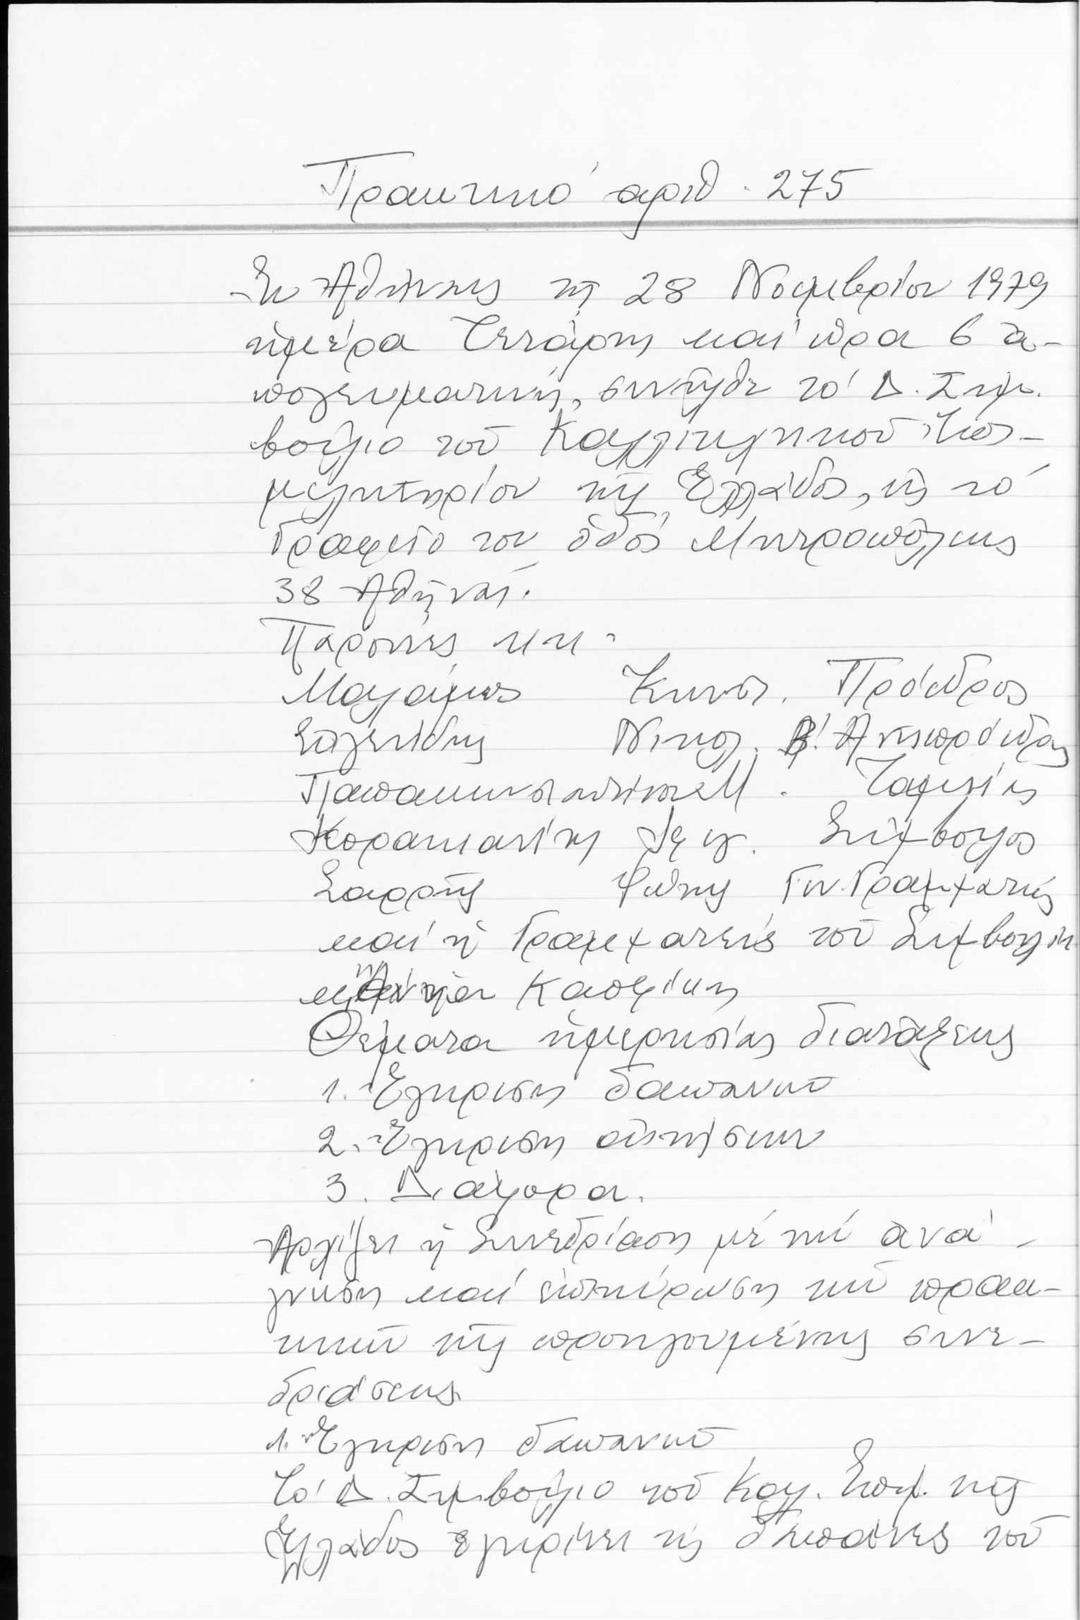 Πρακτικό ἀριθ. 275
Ἐν Ἀθήναις τῇ 28 Νοεμβρίου 1979
ἡμέρα Τετάρτη καί ὥρα 6 ἀ-
πογευματινή, συνῆλθε τό Δ. Συμ-
βούλιο τοῦ Καλλιτεχνικοῦ Ἐπι-
μελητηρίου τῆς Ἑλλάδος, εἰς τό
Γραφεῖο του ὁδός Μητροπόλεως
38 Ἀθῆναι.
Παρόντες κ.κ.
Μαλάμος Κωνστ. Πρόεδρος
Νικολ. Β! Ἀντιπρόεδρος
Παπακωνσταντίνου Μ. Ταμίας
Σύμβουλος
Σαρρῆς Φώτης Γεν. Γραμματεύς
καί ἡ Γραμματεύς τοῦ Συμβουλίου
Θέματα ἡμερησίας διατάξεως
1. Ἔγκριση δαπανῶν
2. Ἔγκριση αἰτήσεων
3. Διάφορα.
Ἀρχίζει ἡ Συνεδρίαση μέ τήν ἀνά-
γνωση καί ἐπικύρωση τῶν πρακ-
τικῶν τῆς προηγουμένης συνε-
δριάσεως.
1. Ἔγκριση δαπανῶν
Τό Δ. Συμβούλιο τοῦ Καλ. Ἐπιμ. τῆς
Ἑλλάδος ἐγκρίνει τίς δαπάνες τοῦ